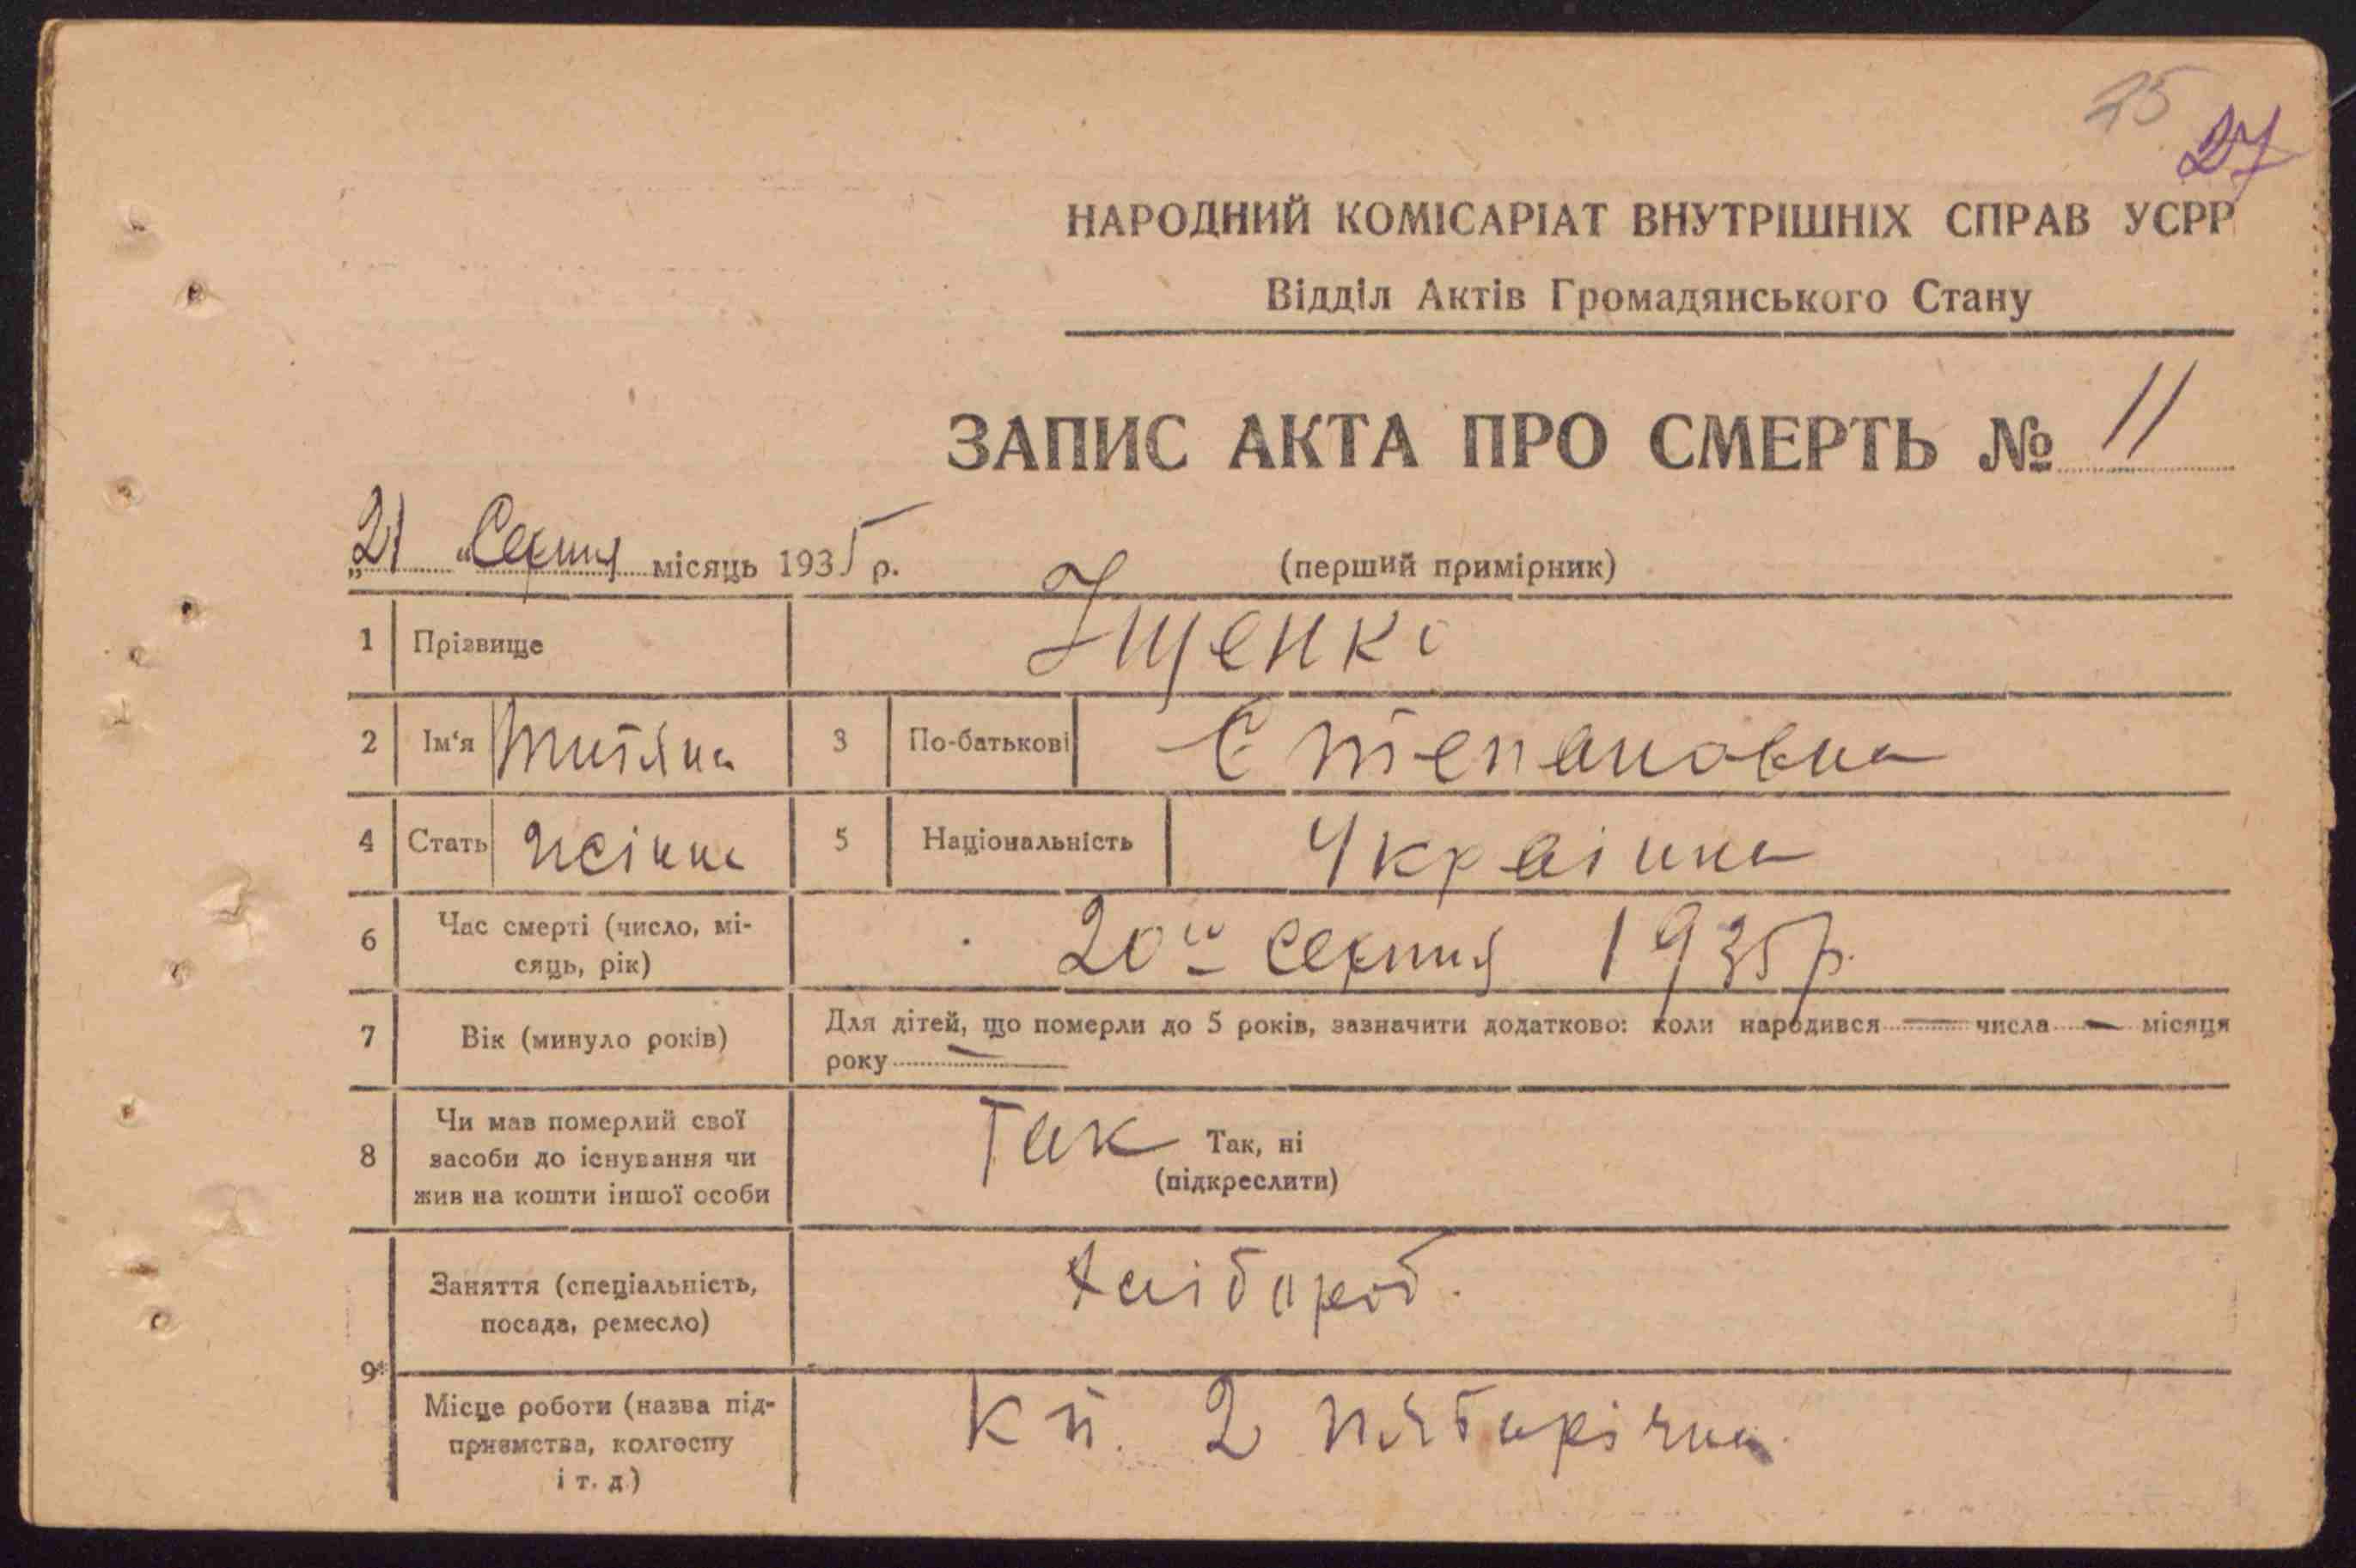 25
27
НАРОДНИЙ КОМІСАРІАТ ВНУТРІШНІХ СПРАВ УСРР
Відділ Актів Громадянського Стану
ЗАПИС АКТА ПРО СМЕРТЬ № 11
„21 “ Серпня місяць 1935 р. (перший примірник)
1 Прізвище Іщенко
2 Ім'я Титяна 3 По-батькові Степановна
4 Стать жінка 5 Національність Українка
6 Час смерті (число, мі-
сяць, рік) 20го серпня 1935 р.
7 Вік (минуло років) Для дітей, що померли до 5 років, зазначити додатково: коли народився — числа — місяця
року —
8 Чи мав померлий свої
засоби до існування чи
жив на кошти іншої особи Так Так, ні
(підкреслити)
9 Заняття (спеціальність,
посада, ремесло) хлібороб.
Місце роботи (назва під-
приємства, колгоспу
і т. д.) 2 пятирічка